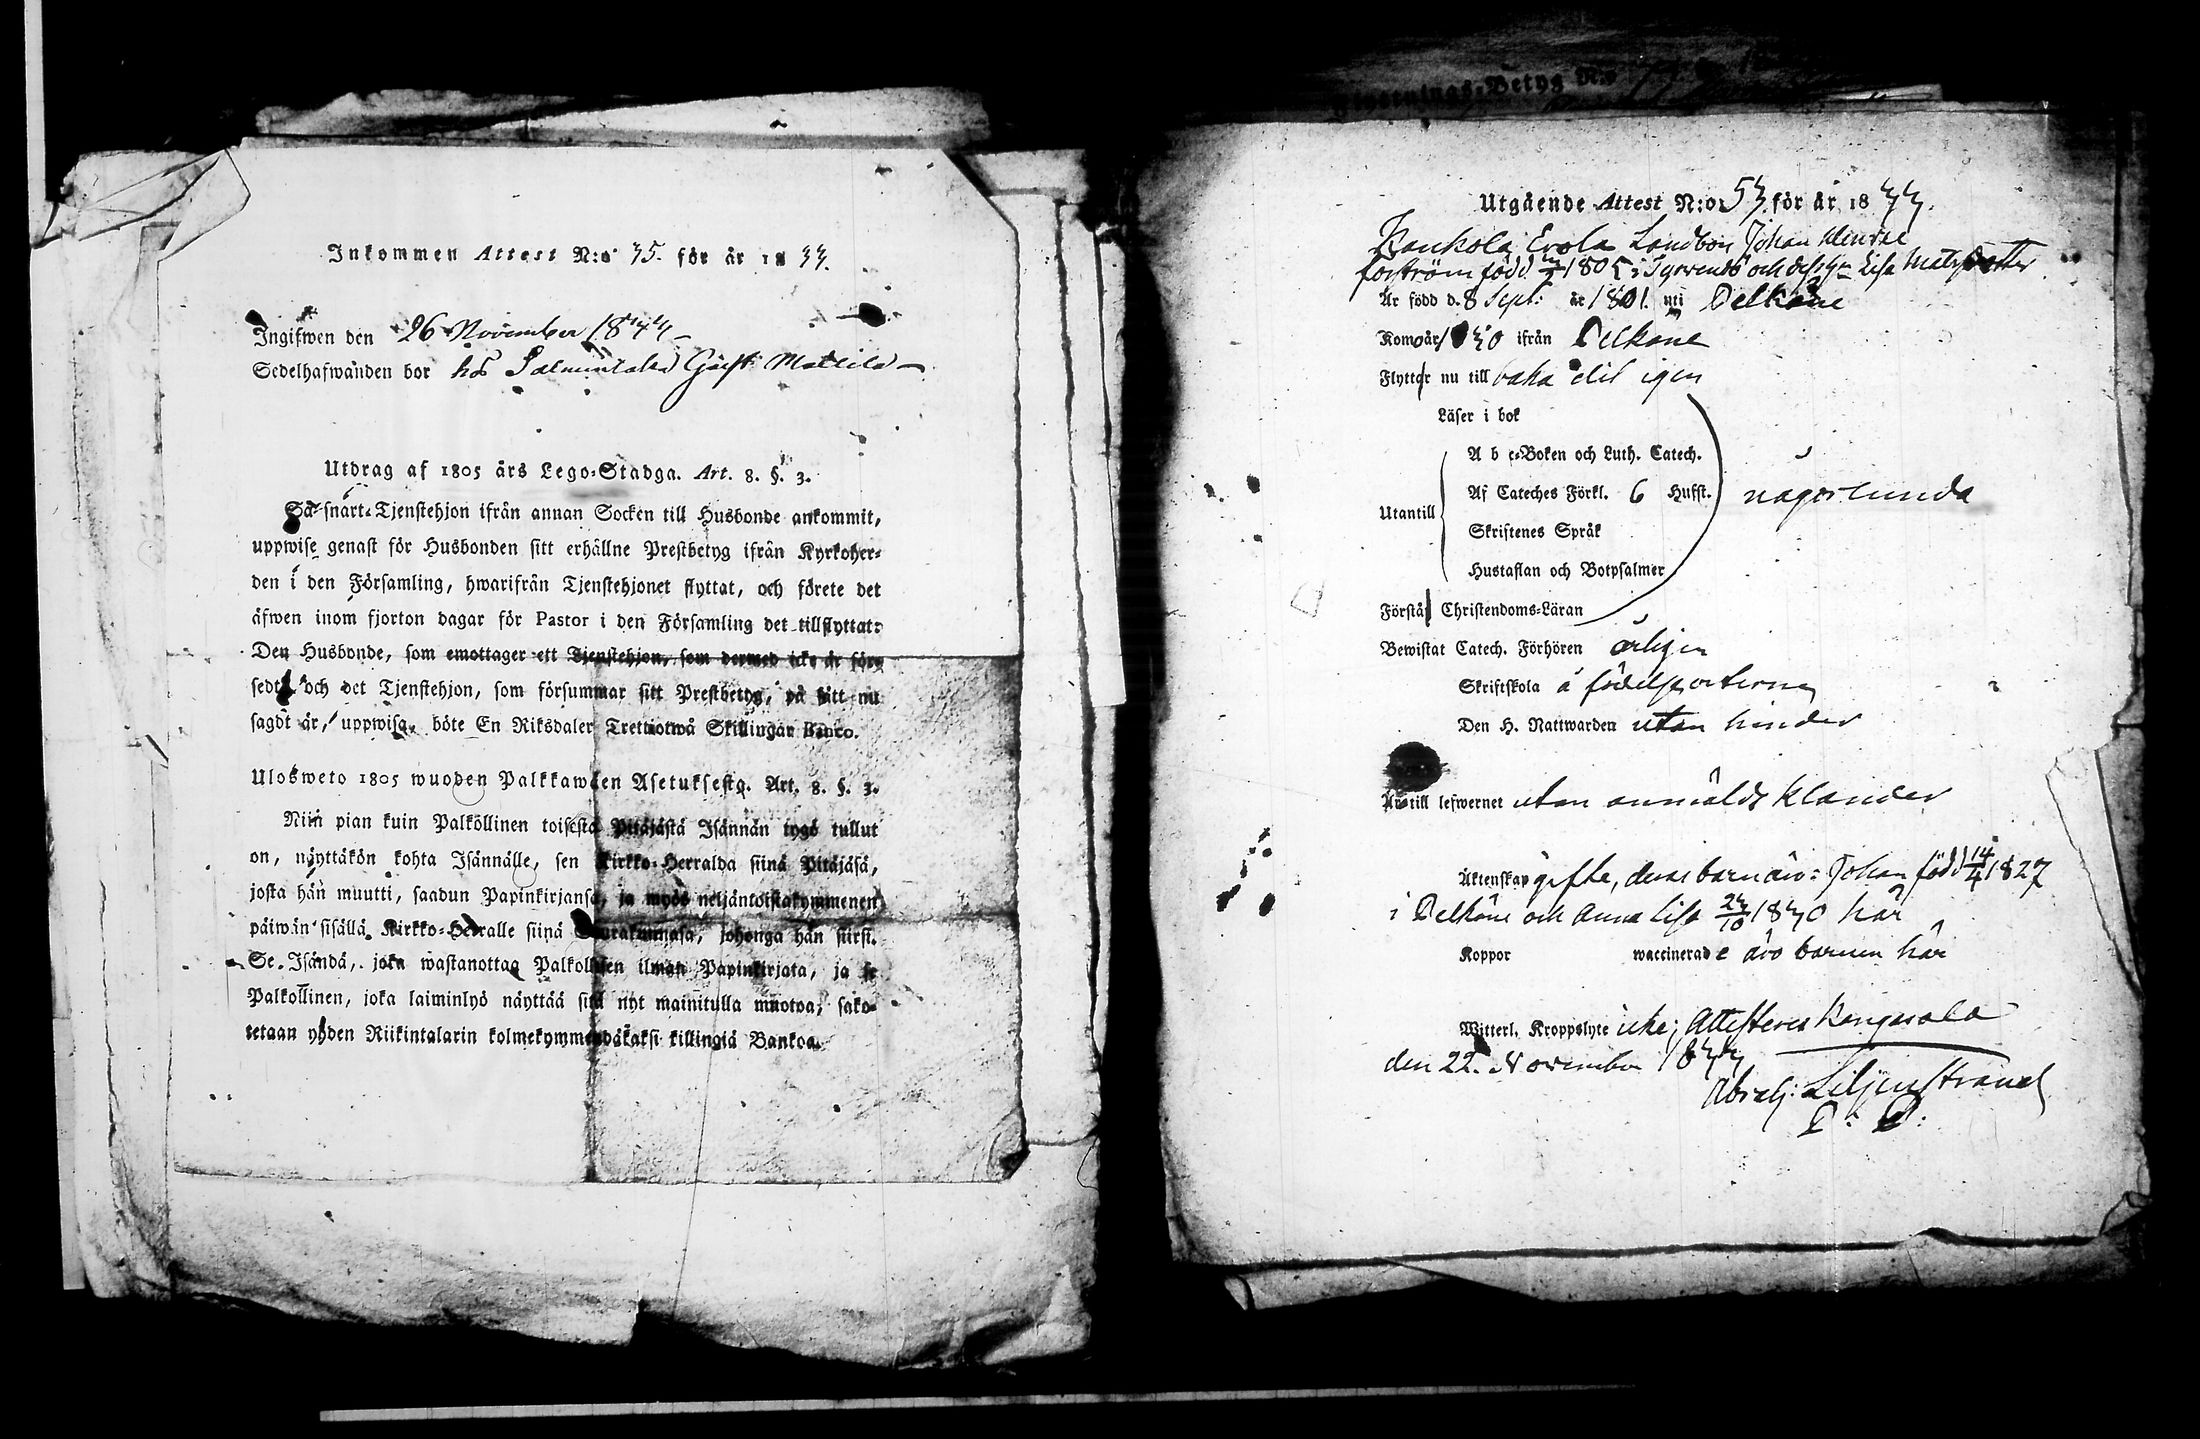 Inkommen Attest N:o 45. för år 1844.
Ingifwen den 26 November 1844
Sedelhafwanden bor hos Salmentaka Gäst: Mattila
Utdrag af 1805 års Lego-Stadga. Art. 8. §. 3.
Så snart Tjenstehjon ifrån annan Socken till Husbonde ankommit,
uppwise genast för Husbonden sitt erhållne Prestbetyg ifrån Kyrkoher-
den i den Församling, hwarifrån Tjenstehjonet flyttat, och förete det
äfwen inom fjorton dagar för Pastor i den Församling det tillflyttat:
Den Husbonde, som emottager ett Tjenstehjon, som dermed icke är för-
sedt, och det Tjenstehjon, som försummar sitt Prestbetyg, på sätt nu
sagdt är, uppwisa, böte En Riksdaler Trettiotwå Skillingar Banco.
Ulosweto 1805 wuoden Palkkawäen Asetuksesta. Art. 8. §. 3.
Niin pian kuin Palkollinen toisesta Pitäjästä Isännän tygö tullut
on, näyttäkön kohta Isännälle, sen Kirkko-Herralda siinä Pitäjäsä,
josta hän muutti, saadun Papinkirjansa, ja myös neljäntoistakymmenen
päiwän sisällä Kirkko-Herralle siinä Seurakunnasa, johonga hän siirsi.
Se Isändä, joka wastanottaa Palkollisen ilman Papinkirjata, ja se
Palkollinen, joka laiminlyö näyttää sitä nyt mainitulla muotoa, sako-
tetaan yhden Riikintalarin kolmekymmendäkaksi killingiä Bankoa.
Flyttnings-Betyg N:o
Utgående Attest N:o 54 för år 1844.
Kaukola Erola Landbon Johan Henric
forström född 1805 i och Lisa Matsdotter
Är född d. 8 Sept: år 1801. uti Pelkäne
Kom år 1840 ifrån Pelkäne
Flyttar nu till baka dit igen
Läser i bok
Utantill
A b c-Boken och Luth. Catech.
Af Cateches Förkl. 6 Hufst. någorlunda
Skriftenes Språk
Hustaflan och Botpsalmer
Förstår Christendoms-Läran
Bewistat Catech. Förhören årligen
Skriftskola å födelseorterne
Den H. Nattwarden utan hinder
Är till lefwernet utan anmäldt klander
Äktenskap gifte, deras barn äro: Johan född 14/4 1827
i Pelkäne och Anna Lisa 24/10 1840 här
Koppor waccinerade äro barnen här
Witterl. Kroppslyte icke; Attesteras Kangasala
den 22. November 1844
Abrah: Liljenstrand